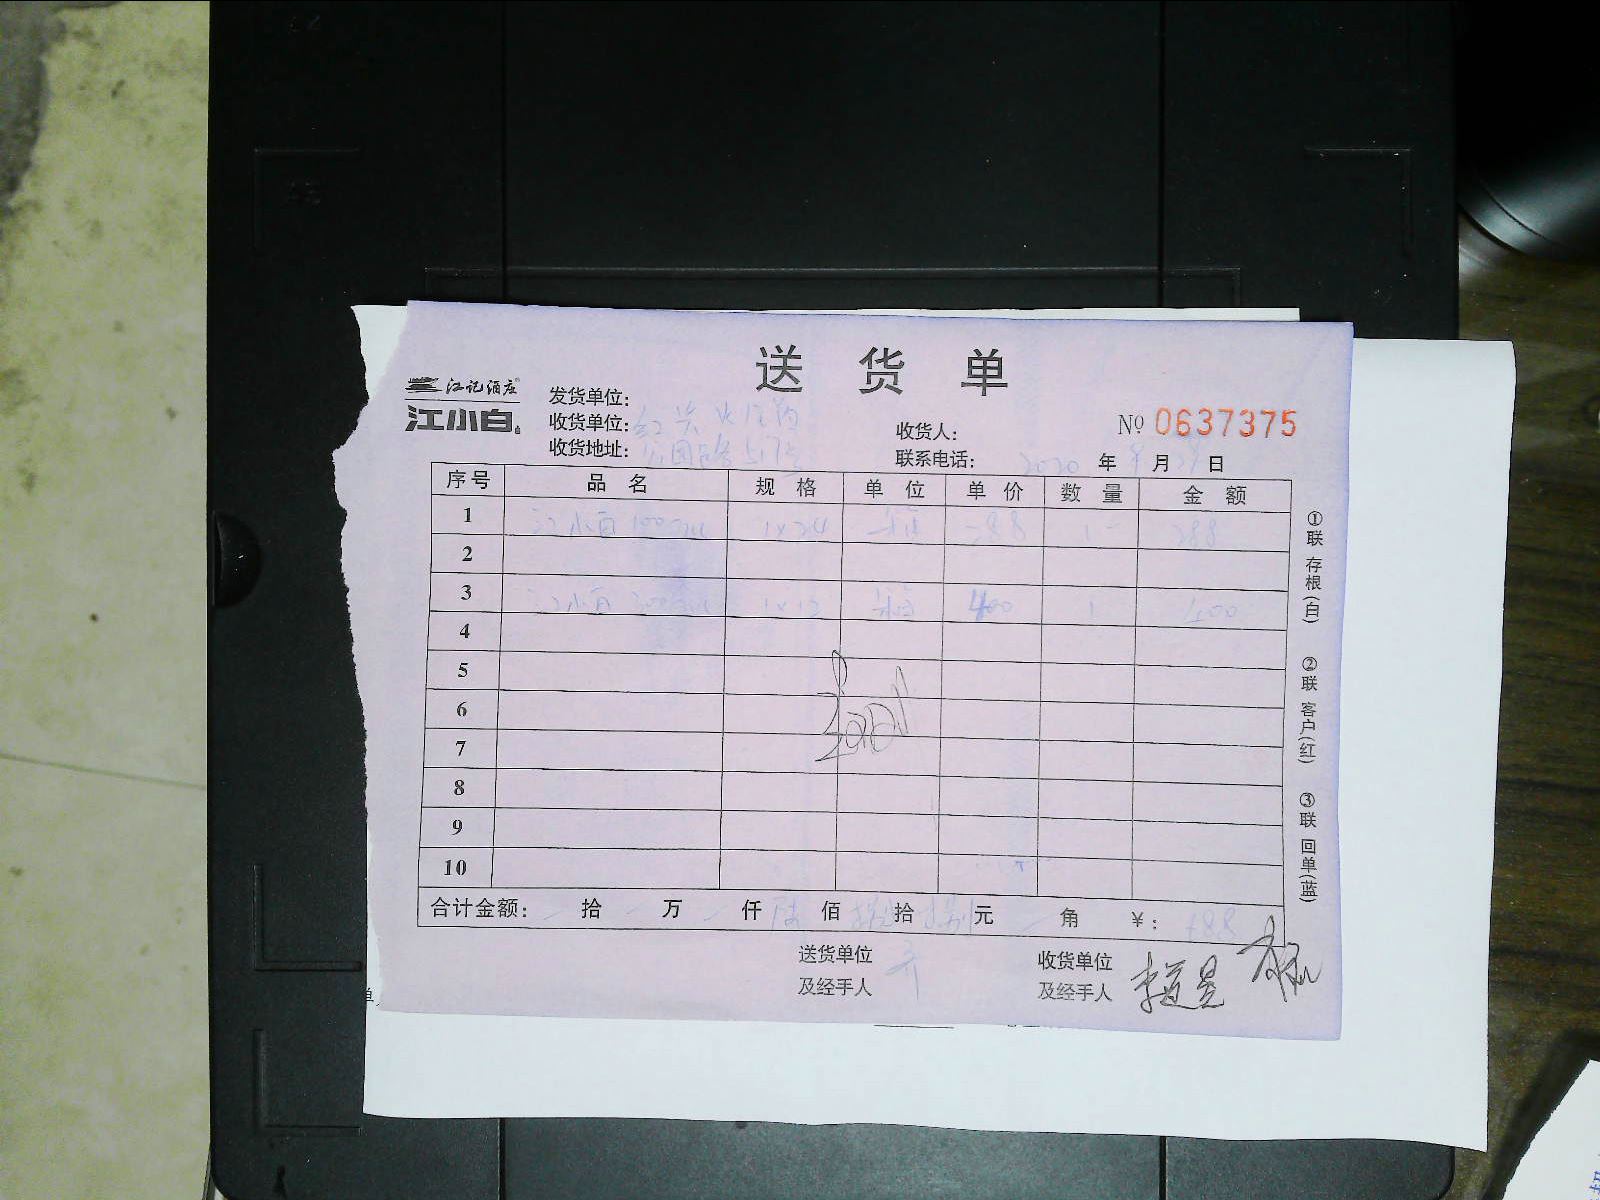 送 货 单
江记酒庄
江小白
发货单位:
收货单位:
收货地址: 公园路
收货人:
联系电话:
№ 0637375
2020 年 月 日
序号 品名 规格 单位 单价 数量 金额
1 江小白 100ml 1×24 箱 288 1 288
2
3 江小白 1×12 箱 400 1 400
4
5
6
7
8
9
10
合计金额: 拾 万 仟 陆 佰 捌 拾 捌 元 角 ¥: 688
送货单位
及经手人
收货单位
及经手人
①联 存根(白)
②联 客户(红)
③联 回单(蓝)